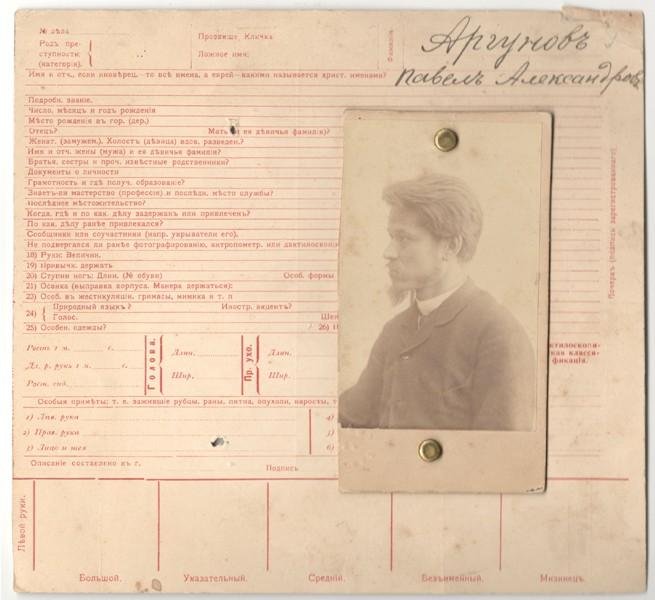 № дѣла
Родъ пре-
ступности:
(категорія).
Прозвище. Кличка
Ложное имя:
Фамилія
Аргуновъ
Павелъ Александровъ
Имя и отч., если иновѣрец.-то всѣ имена, а еврей-какими называется христ. именами?
Подробн. званіе.
Число, мѣсяцъ и годъ рожденія
Мѣсто рожденія въ гор. (дер.)
Отецъ?
Мать и ея дѣвичья фамилія?
Женат. (замужем.), Холостъ (дѣвица) вдов. разведен.?
Имя и отч. жены (мужа) и ея дѣвичья фамилія?
Братья, сестры и проч. извѣстные родственники?
Документы о личности
Грамотность и гдѣ получ. образованіе?
Знаетъ-ли мастерство (профессію) и послѣдн. мѣсто службы?
Послѣднее мѣстожительство?
Когда, гдѣ и по как. дѣлу задержан или привлеченъ?
По как. дѣлу ранѣе привлекался?
Сообщники или соучастники (напр. укрыватели его),
Не подвергался ли ранѣе фотографированію, антропометр. или
18) Руки: Величин.
19) Привычк. держать.
20) Ступни ногъ: Длин. (№ обуви)
Особ. формы
21) Осанка (выправка корпуса. Манера держаться):
22) Особ. въ жестикуляціи, гримасы, мимика и т. п
24) Природный языкъ?
Иностр. акцентъ?
Голос.
25) Особен. одежды?
26)
Почеркъ (подпись зарегистрированнаго).
Ростъ 1 м.
с.
Дл. р. руки 1 м.
с.
Рост. сид.
Голова.
Длин.
Шир.
Пр. ухо.
Длин.
Шир.
ктилоскопи-
кая класси-
фикація.
Особыя примѣты; т. е. зажившіе рубцы, раны, пятна, опухоли, наросты,
1) Лѣв. рука
4)
2) Прав. рука
5)
3) Лицо и шея
6)
Описаніе составлено въ г.
Подпись
Лѣвой руки.
Большой.
Указательный.
Средній.
Безъименный.
Мизинецъ.